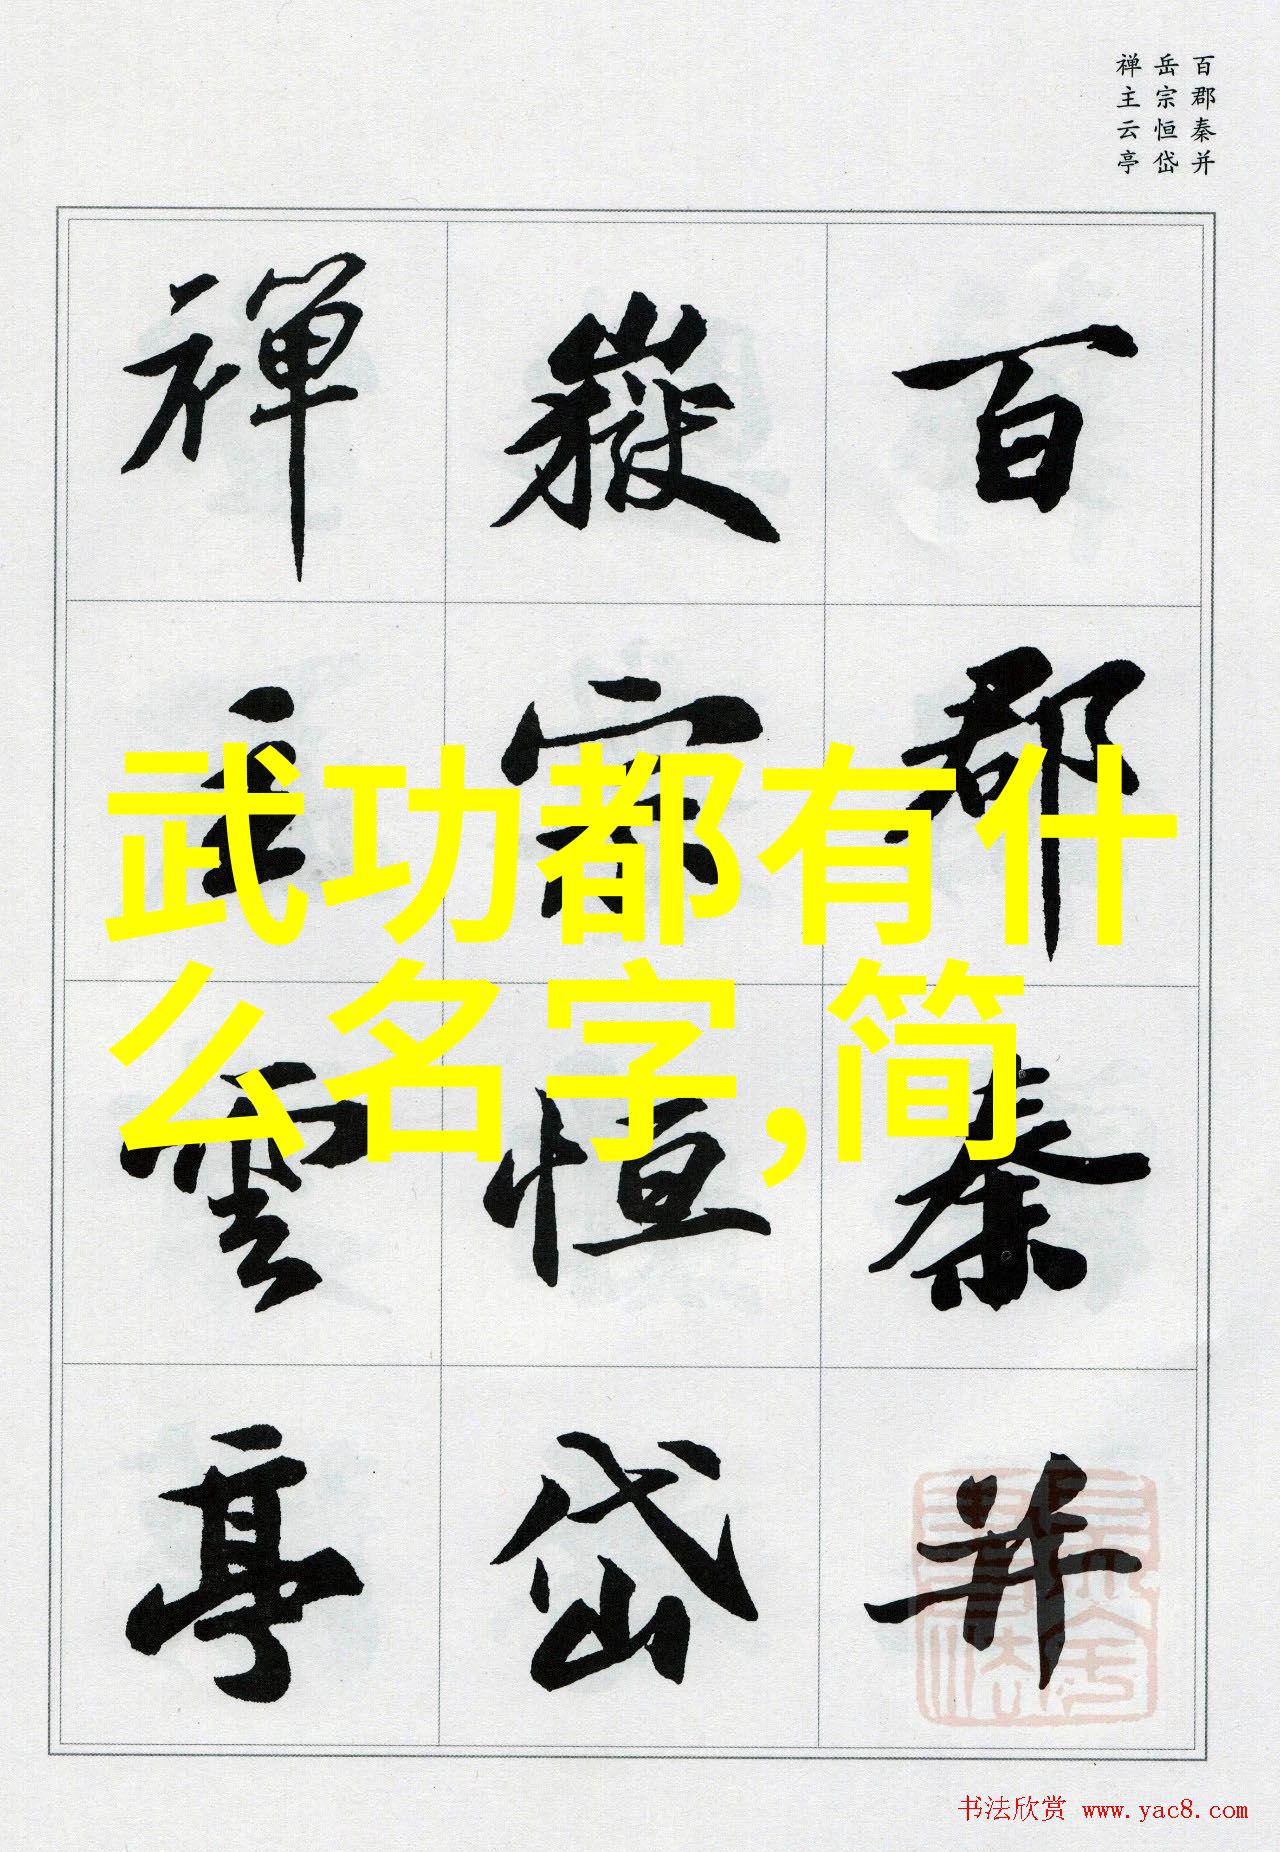 百郡秦并
岳宗恒岱
禅主云亭
百郡秦并
嶽宗恒岱
禅主雲亭
武功都有什
么名字,简
书法欣赏 www.yac8.com